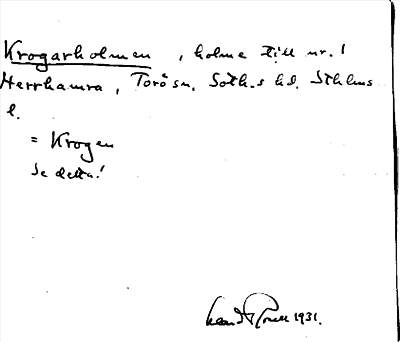 Krogarholmen, holme till nr. 1
Herrhamra, Torö sn. Soth.s hd. Sthlms
l.
= Krogen
Se detta!
1931.